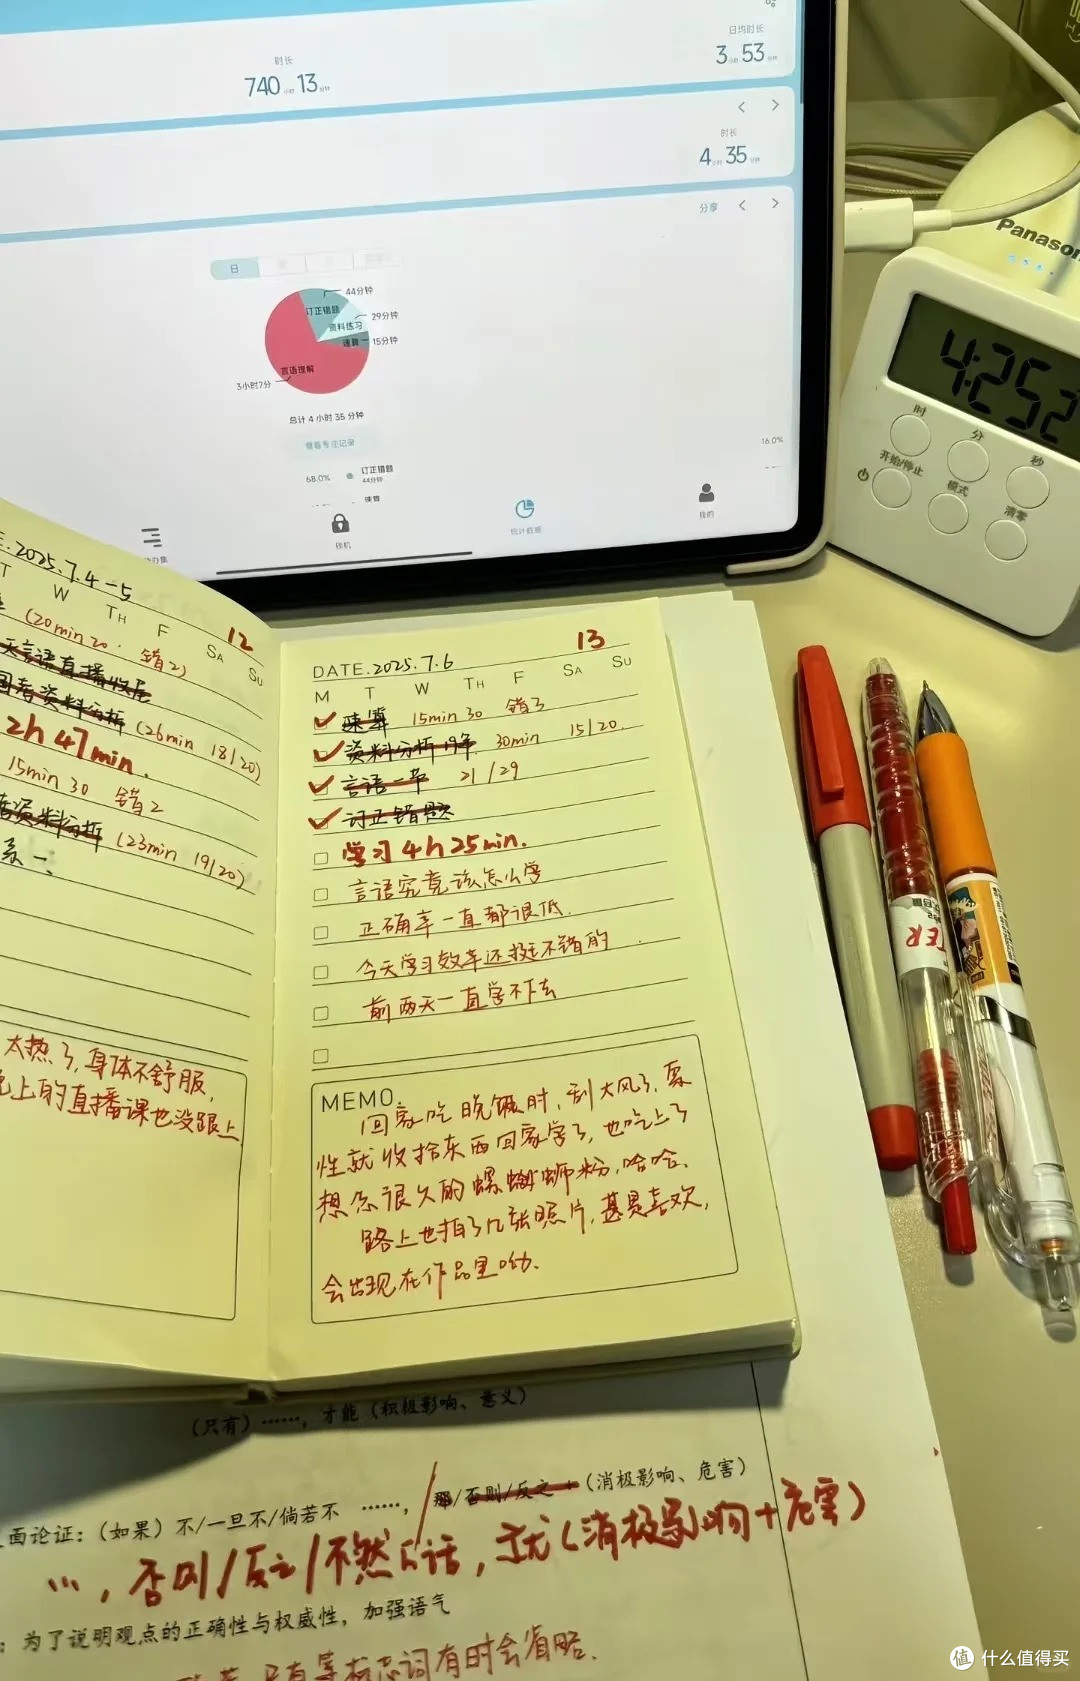 时长
740小时13分钟
日均时长
3小时53分钟
时长
4小时35分钟
分享
日
44分钟
订正错题
29分钟
资料练习
速算
15分钟
言语理解
3小时7分
总计 4 小时 35 分钟
查看专注记录
16.0%
68.0%
订正错题
44分钟
速算
办集
锁机
统计数据
我的
Panason
4:252
时
分
秒
开始/停止
模式
清零
E.2025.7.4-5
12
T W TH F SA SU
(20min 20. 错2)
天言语直播收尾
国考资料分析 (26min 18/20)
2h 47min.
15min 30 错2
考资料分析 (23min 19/20)
太热了,身体不舒服,
晚上的直播课也没跟上
13
DATE.2025.7.6
M T W TH F SA SU
速算 15min 30 错3
资料分析 19年 30min 15/20.
言语一节 21/29
订正错题
学习 4h 25min.
言语究竟该怎么学
正确率一直都很低.
今天学习效率还挺不错的.
前两天一直学不下去
MEMO
回家吃晚饭时,刮大风了,索
性就收拾东西回家学了,也吃上了
想念很久的螺蛳粉,哈哈.
路上也拍了几张照片,甚是喜欢,
会出现在作品里呦.
(只有)……,才能(积极影响、意义)
面论证:(如果)不/一旦不/倘若不 ……,那/否则/反之+(消极影响、危害)
…,否则/反之/不然的话,就(消极影响+危害)
:为了说明观点的正确性与权威性,加强语气
只有等标志词有时会省略.
值 什么值得买